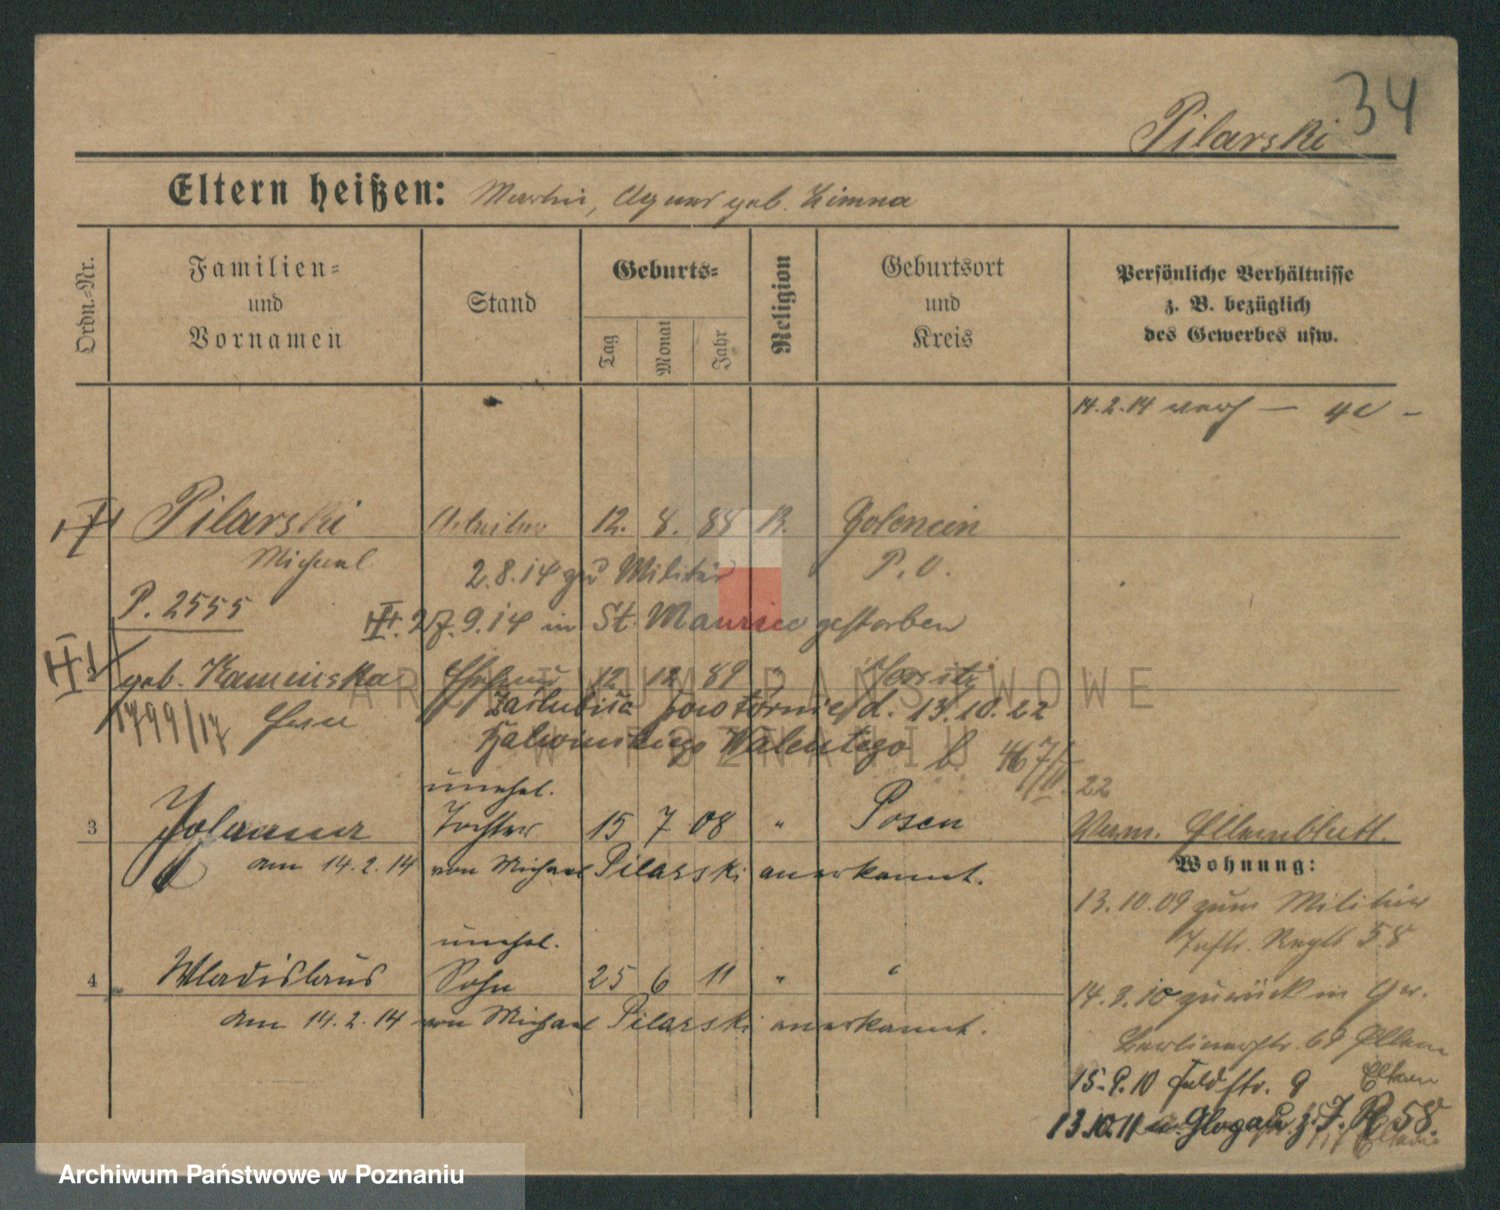 34
Pilarski
Eltern heißen: Martin, Agnes geb. Zimna
Ordn.=Nr.
Familien=
und
Vornamen
Stand
Geburts=
Tag
Monat
Jahr
Religion
Geburtsort
und
Kreis
Persönliche Verhältnisse
z. B. bezüglich
des Gewerbes usw.
14.2.14 verh —
Pilarski Arbeiter 12. 8. 88 K. Golencin
Michael 2.8.14 zum Militär P. O.
P. 2555
27.9.14 in St. Maurice gestorben
geb. Kaminska Ehefrau 12 12 89 "
1799/17
zaślubiła powtórnie d. 13.10.22
Walentego
467/ 22
unehel.
3 Johanna Tochter 15 7 08 " Posen
am 14.2.14 von Michael Pilarski anerkannt.
Verm. Ellernblatt.
Wohnung:
13.10.09 zum Militär
Inftr. Regt 58
unehel.
4 Wladislaus Sohn 25 6 11 " "
am 14.2.14 von Michael Pilarski anerkannt.
14.9.10 zurück in
Berlinerstr. 69 Eltern
15.9.10 Feldstr. 9 Eltern
13.10.11 n. Glogau z. J. R. 58.
ARCHIWUM PAŃSTWOWE
W POZNANIU
Archiwum Państwowe w Poznaniu